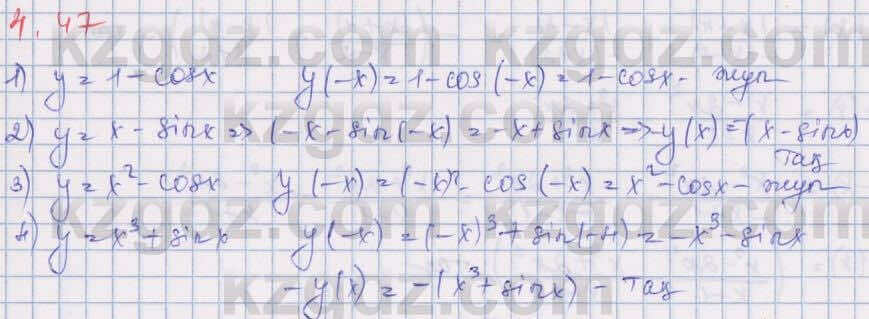 4.47
1) y = 1 - cosx y(-x) = 1 - cos(-x) = 1 - cosx - жұп
2) y = x - sinx => (-x - sin(-x) = -x + sinx => -y(x) = -(x - sinx)
тақ
3) y = x² - cosx y(-x) = (-x)² - cos(-x) = x² - cosx - жұп
4) y = x³ + sinx y(-x) = (-x)³ + sin(-x) = -x³ - sinx
-y(x) = -(x³ + sinx) - тақ
kzgdz.com kzgdz.com
kzgdz.com kzgdz.com
kzgdz.com kzgdz.com